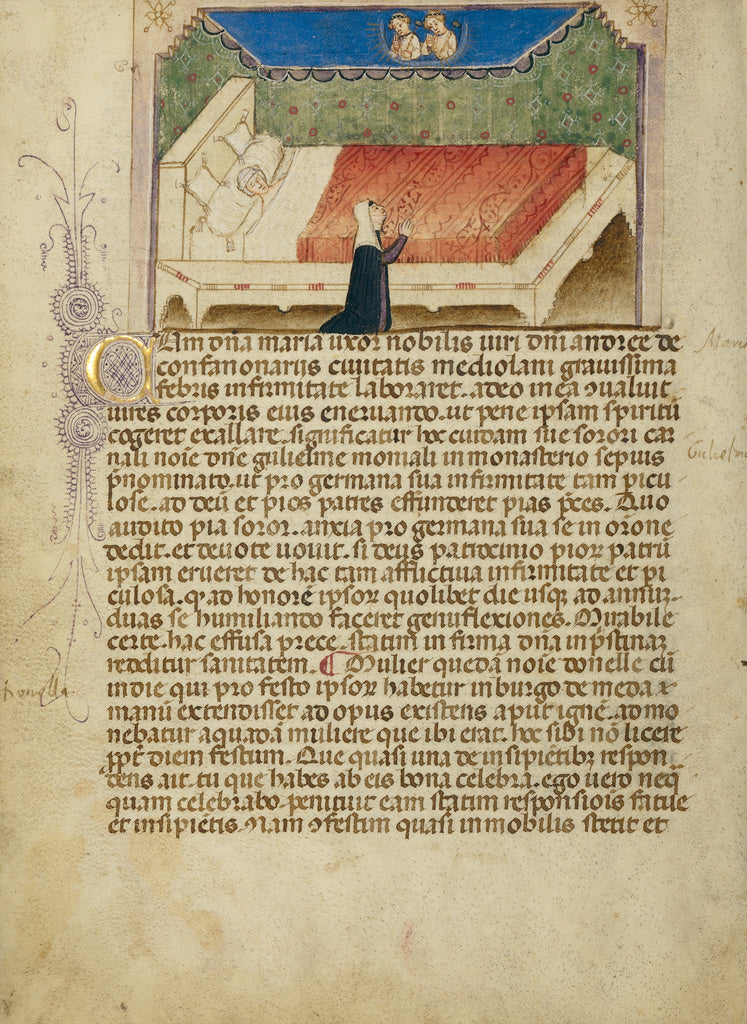 Cum dña maria uxor nobilis uiri dni andree de
confanonariis ciuitatis mediolani grauissima
febris infirmitate laboraret. adeo in ea ꝯualuit
uires corporis eius eneruando. ut pene ipsam spiritū
cogeret exallare. significatur hoc cuidam sue sorori car
nali noie dñe gulielme moniali in monasterio sepius
p̄nominato. ut pro germana sua infirmitate tam picu
lose. ad deū et pios patres effunderet pias p̄ces. Quo
audito pia soror. anxia pro germana sua se in orone
dedit. et deuote uouit. si deus patrocinio pioꝝ patrū
ipsam erueret de hac tam afflictiua infirmitate et pi
culosa. ꝙ ad honorē ipsoꝝ quolibet die usqꝫ ad annū.
duas se humiliando faceret genuflexiones. Mirabile
certe. hac effusa prece. statim infirma dña in p̄stinaꝫ
redditur sanitatem. ¶ Mulier quedā noie donelle cū
in die qui pro festo ipsoꝝ habetur in burgo de meda
manū extendisset ad opus existens aput ignē. admo
nebatur a quadā muliere que ibi erat. hoc sibi nō licere
ꝓpt̄ diem festum. Que quasi una de insipiētibꝫ respon
dens ait. tu que habes ab eis bona celebra. ego uero neq̄
quam celebrabo. penituit eam statim responsiōis fatue
et insipiētis. Nam ꝯfestim quasi inmobilis stetit et
Maria
Gulielma
donella